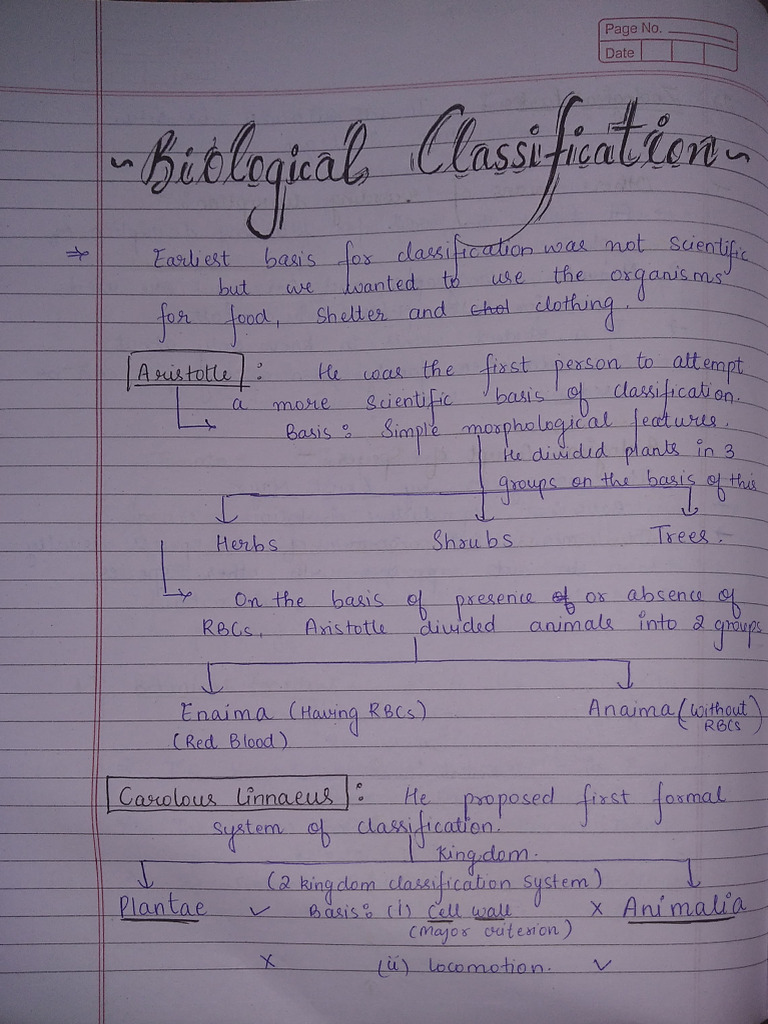 Page No.
Date
~ Biological Classification ~
⇒ Earliest basis for classification was not scientific
but we wanted to use the organisms
for food, shelter and chol clothing.
Aristotle : He was the first person to attempt
a more scientific basis of classification.
Basis : Simple morphological features.
He divided plants in 3
groups on the basis of this
Herbs Shrubs Trees.
On the basis of presence of or absence of
RBCs, Aristotle divided animals into 2 groups
Enaima (Having RBCs) Anaima (without RBCs)
(Red Blood)
Carolous Linnaeus : He proposed first formal
system of classification.
Kingdom.
(2 kingdom classification system)
Plantae ✓ Basis : (i) Cell wall × Animalia
(Major criterion)
× (ii) locomotion. ✓